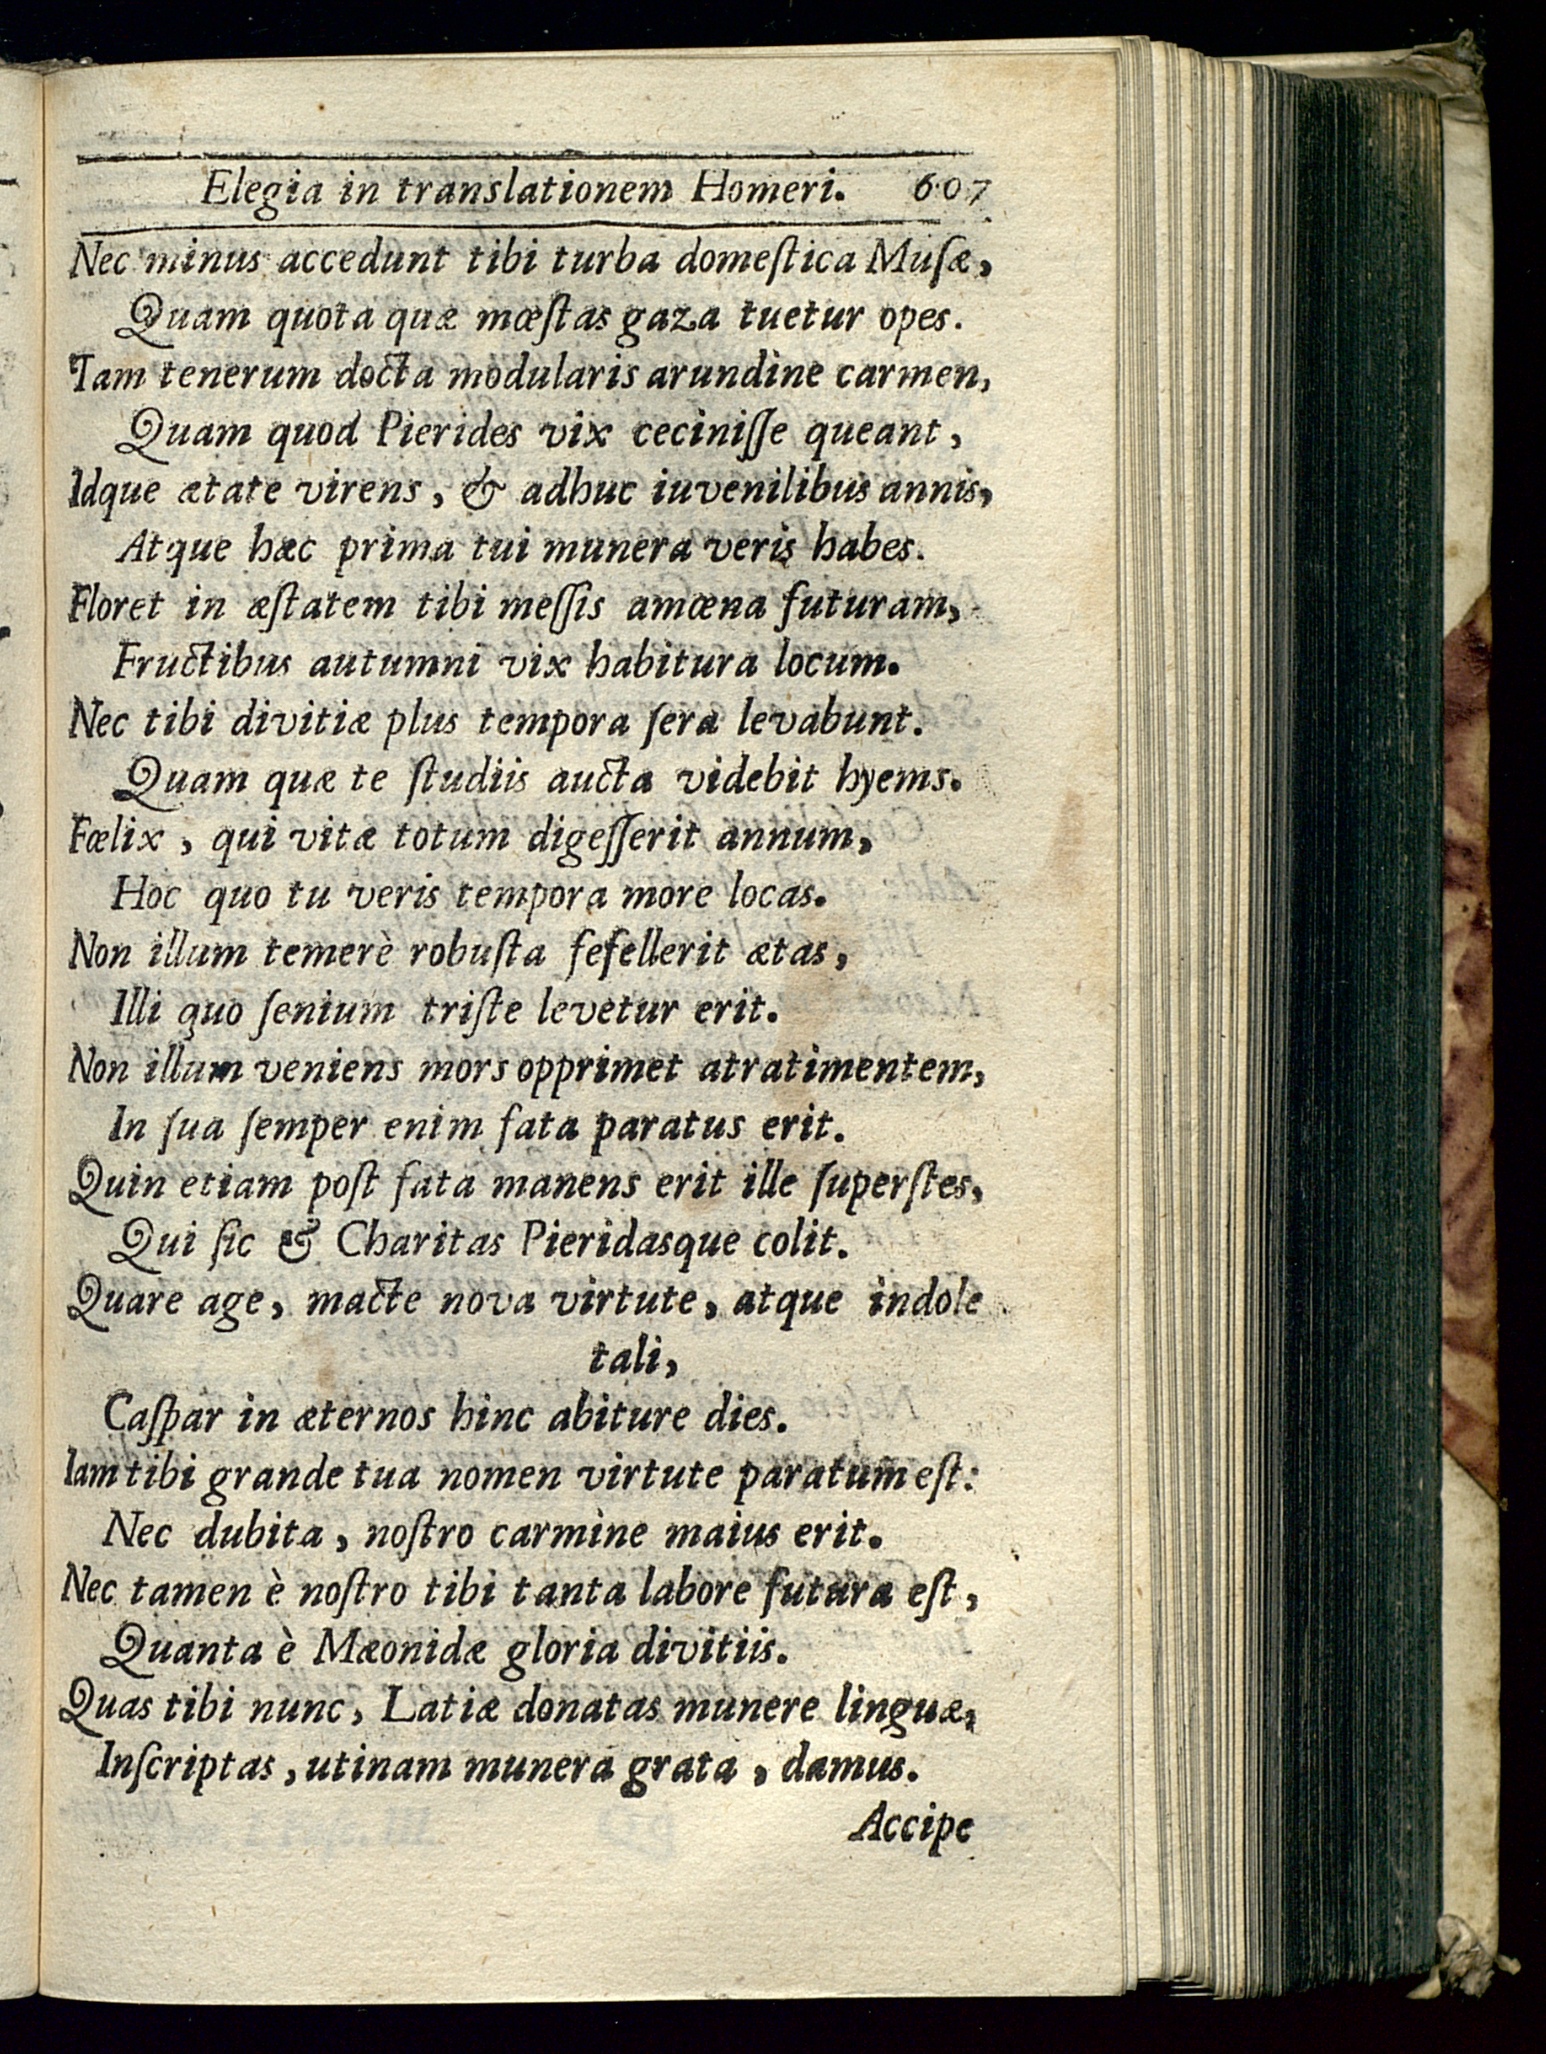 Elegia in translationem Homeri. 607
Nec minus accedunt tibi turba domeſtica Muſæ,
Quam quota quæ mœſtas gaza tuetur opes.
Tam tenerum docta modularis arundine carmen,
Quam quod Pierides vix ceciniſſe queant,
Idque ætate virens, & adhuc iuvenilibus annis,
Atque hæc prima tui munera veris habes.
Floret in æſtatem tibi meſſis amœna futuram,
Fructibus autumni vix habitura locum.
Nec tibi divitiæ plus tempora ſera levabunt.
Quam quæ te ſtudiis aucta videbit hyems.
Fœlix, qui vitæ totum digeſſerit annum,
Hoc quo tu veris tempora more locas.
Non illum temerè robuſta fefellerit ætas,
Illi quo ſenium triſte levetur erit.
Non illum veniens mors opprimet atratimentem,
In ſua ſemper enim fata paratus erit.
Quin etiam poſt fata manens erit ille ſuperſtes,
Qui ſic & Charitas Pieridasque colit.
Quare age, macte nova virtute, atque indole
tali,
Caſpar in æternos hinc abiture dies.
Iam tibi grande tua nomen virtute paratum eſt:
Nec dubita, noſtro carmine maius erit.
Nec tamen è noſtro tibi tanta labore futura eſt,
Quanta è Mæonidæ gloria divitiis.
Quas tibi nunc, Latiæ donatas munere linguæ,
Inſcriptas, utinam munera grata, damus.
Accipe